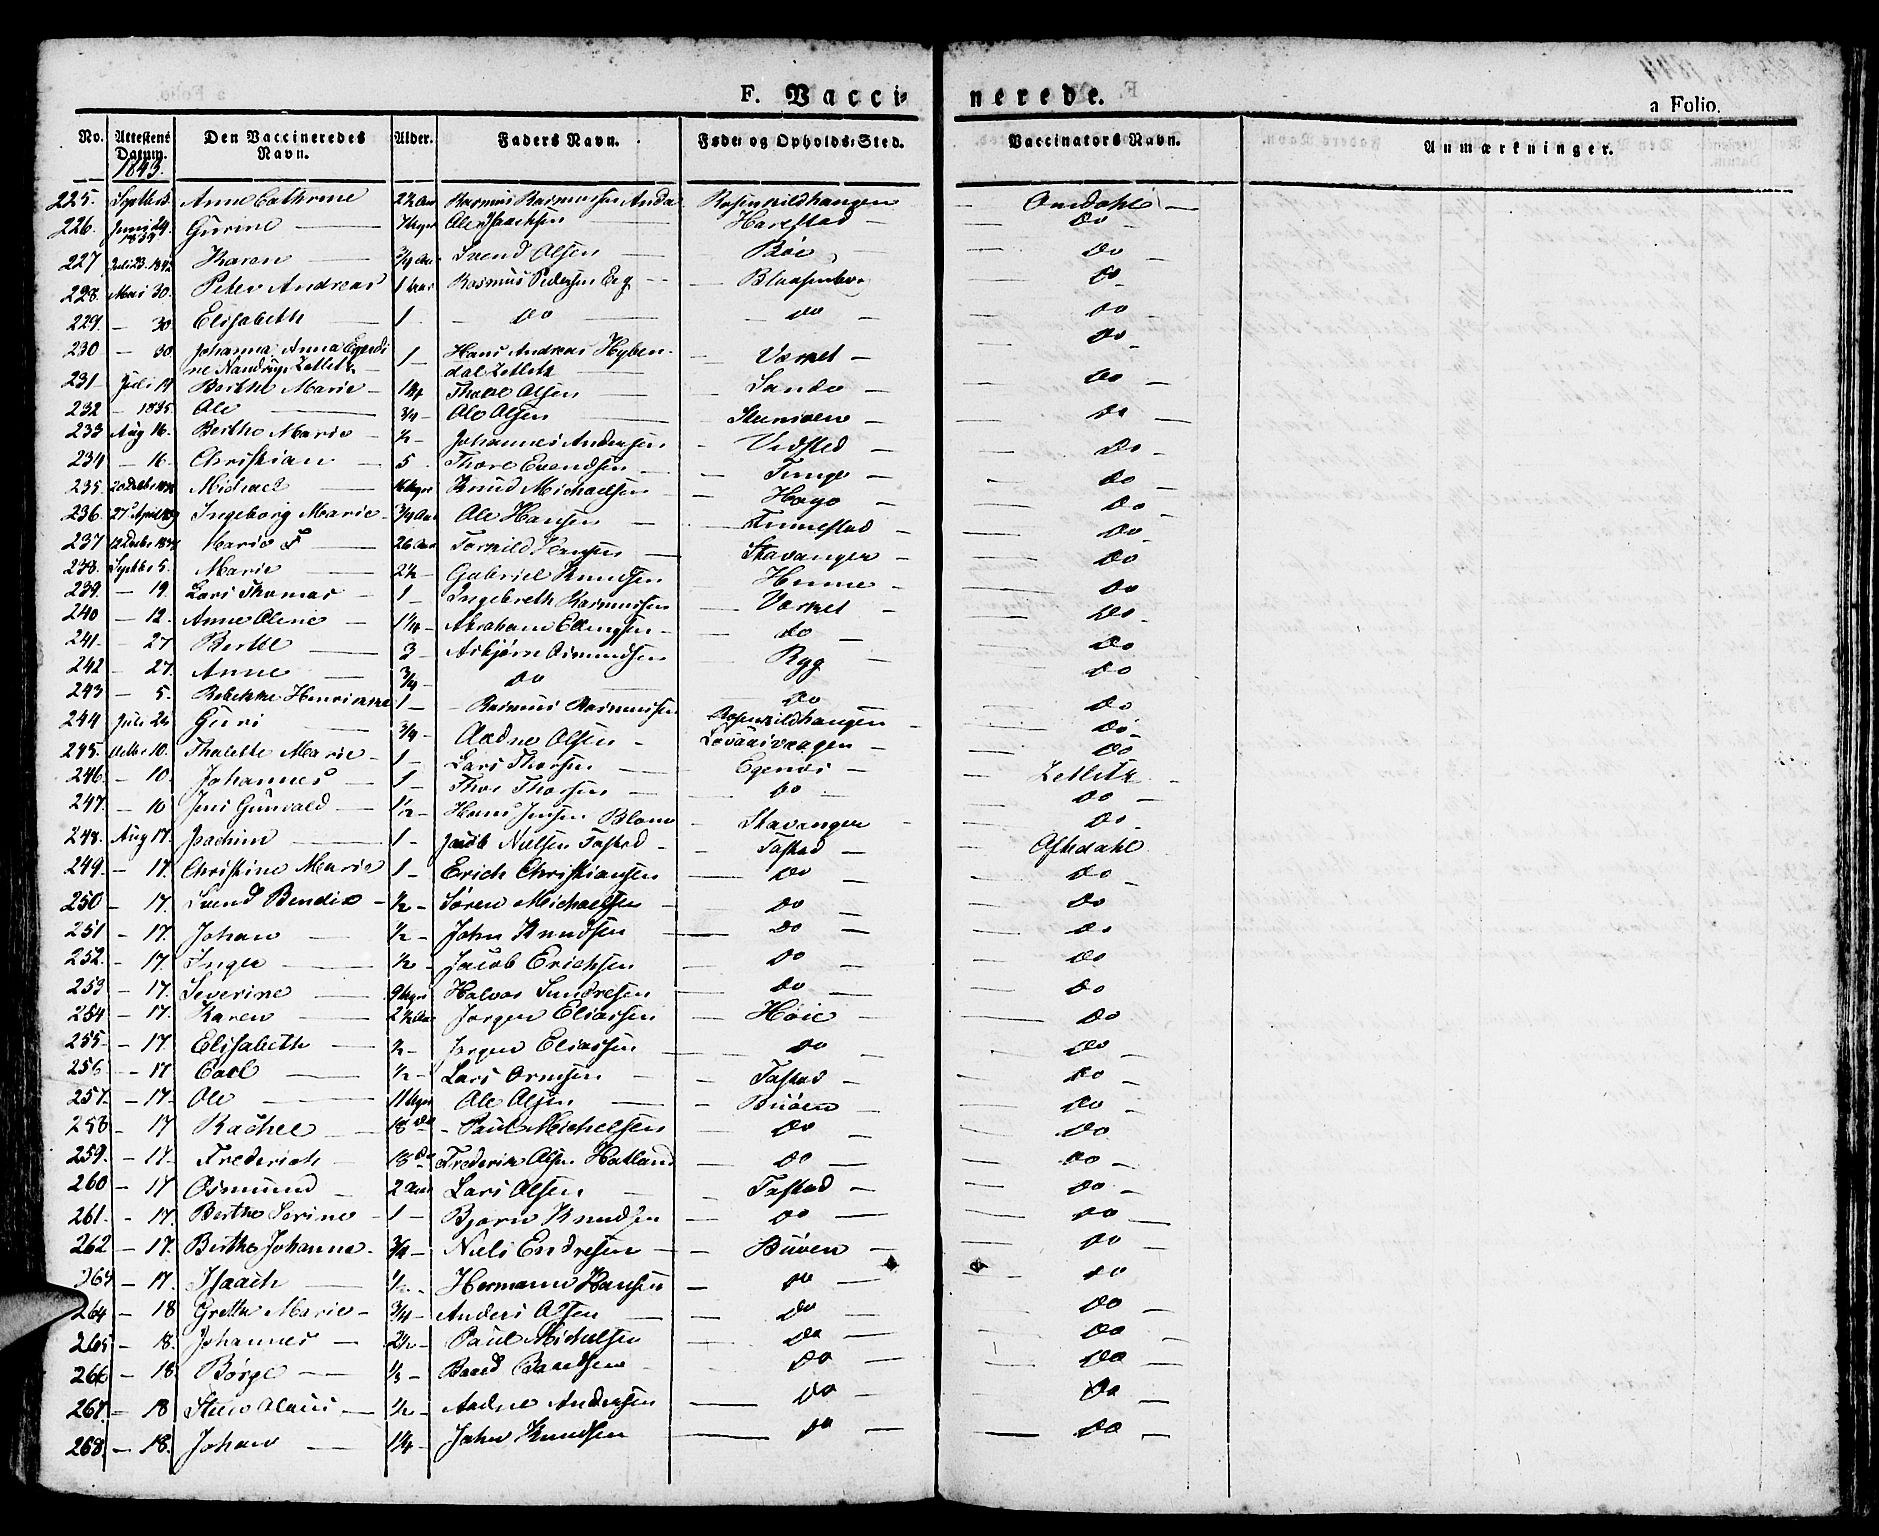 F. Vacci-nerede.
a Folio.
No. Attestens Datum. Den Vaccineredes Navn. Alder. Faders Navn. Føde- og Opholds-Sted. Vaccinators Navn. Anmærkninger.
1843.
225. Septbr Anne Cathrine 2½ Aar Rasmus Rasmussen Rosenkildhaugen
226. Juni 29. 1839 Gurine 7 Uger Ole Isachsen Harestad — Do
227 Juli 23. 1842 Karen ¾ Aar Svend Olsen Bøe — Do
228. Mai 30. Peter Andreas 1 Aar Rasmus Pedersen — Do
229. — 30. Elisabeth 1 — Do — Do — Do
230 — 30. Johanna Anna — ne Nandrup Zetlitz 1 — Hans Andreas — dal Zetlitz Værket — Do
231 Juli 17 Berthe Marie 1¼ Olsen Sande — Do
232 — 1835. Ole ¾ — Ole Olsen — Do
233 Aug 16. Berthe Marie ½ — Johannes Andersen — Do
234 — 16. Christian 5 Thore Evendsen Tunge — Do
235. Michael 16 Uger Knud Michaelsen — Do
236. 27 April Ingeborg Marie ¾ Aar Ole Hansen Finnestad — Do
237 Marie 26 Aar Torkild Hansen Stavanger — Do
238. Septbr 5. Marie 2½ — Gabriel Knudsen — Do
239. — 19. Lars Thomas 1 — Ingebreth Rasmussen Værket — Do
240 — 12. Anne Oline 1¼ — Abraham Ellingsen — Do — Do
241. — 27 Berthe 3 — Asbjørn Osmundsen Ryg — Do
242 — 27. Anne ¾ Do Do — Do
243 — 5. Rebekke Henrikke 1 — Rasmus Rasmussen Rosenkildhaugen — Do
244 Juli 24 Guri ¾ — Aadne Olsen — Do
245. 10. Thalette Marie 1 — Lars Thorsen Egenæs — Zetlitz
246. — 10. Johannes 1 — Thor Thorsen — Do — Do
247. — 10 Jens Gunvald 1½ — Hans Jensen Blom Stavanger — Do
248. Aug 17. Joachim 1 — Jacob Nielsen Tastad Tastad —
249. — 17. Christine Marie 1 — Erich Christiansen — Do — Do
250 — 17. Svend Bendix ½ — Søren Michaelsen — Do — Do
251 — 17. Johan ½ — John Knudsen — Do — Do
252. — 17. Inger ½ — Jacob Erichsen — Do — Do
253 — 17. Severine 9 Uger Halvor — Do — Do
254 — 17. Karen 2½ Aar Jørgen Eliassen — Høie — Do
255 — 17. Elisabeth ½ — Jørgen Eliassen — Do — Do
256 — 17 Carl ½ — Lars Ormsen — Tastad — Do
257. — 17. Ole 11 Uger Ole Olsen — Buøen — Do
258 — 17 Rachel 18 do — Paul Michelsen — Do — Do
259. — 17. Frederich 18 Do Frederik Olsen Hatland — Do — Do
260 — 17 Osmund 2 Aar Lars Olsen — Tastad — Do
261. — 17. Berthe Serine 1 — Bjørn Knudsen — Do — Do
262 — 17. Berthe Johanna ¾ — Niels Endresen — Buøen — Do
263 — 17. Isaach ½ — Hermann Hansen — Do — Do
264 — 18 Grethe Marie ¾ — Anders Olsen — Do — Do
265 — 18. Johannes 2½ — Paul Michelsen — Do — Do
266 — 18. Børge ⅓ — Baard Baardsen — Do — Do
267. — 18 Steen Claus ½ — Aadne Andersen — Do — Do
268. — 18. Johan 1¼ — John Knudsen — Do — Do